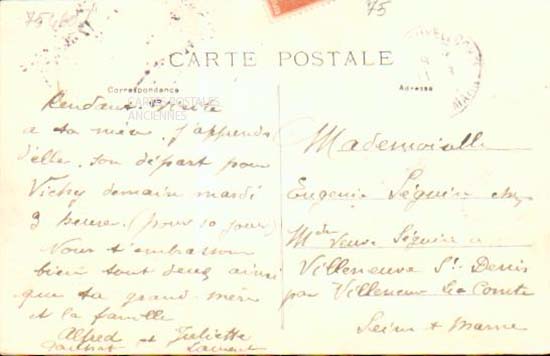 75
75
CARTE POSTALE
Correspondance
Adresse
CARTES POSTALES
ANCIENNES
Rendant
a ta mère, j'apprends
d'elle, son départ pour
Vichy demain mardi
9 heures (pour 10 jours)
Nous t'embrassons
bien tout deux ainsi
que ta grand-mère
et la famille
Alfred et Juliette
Mademoiselle
Eugenie Séguin chez
Mde Veuve Séguin a
Villeneuve St Denis
par Villeneuve Le Comte
Seine & Marne